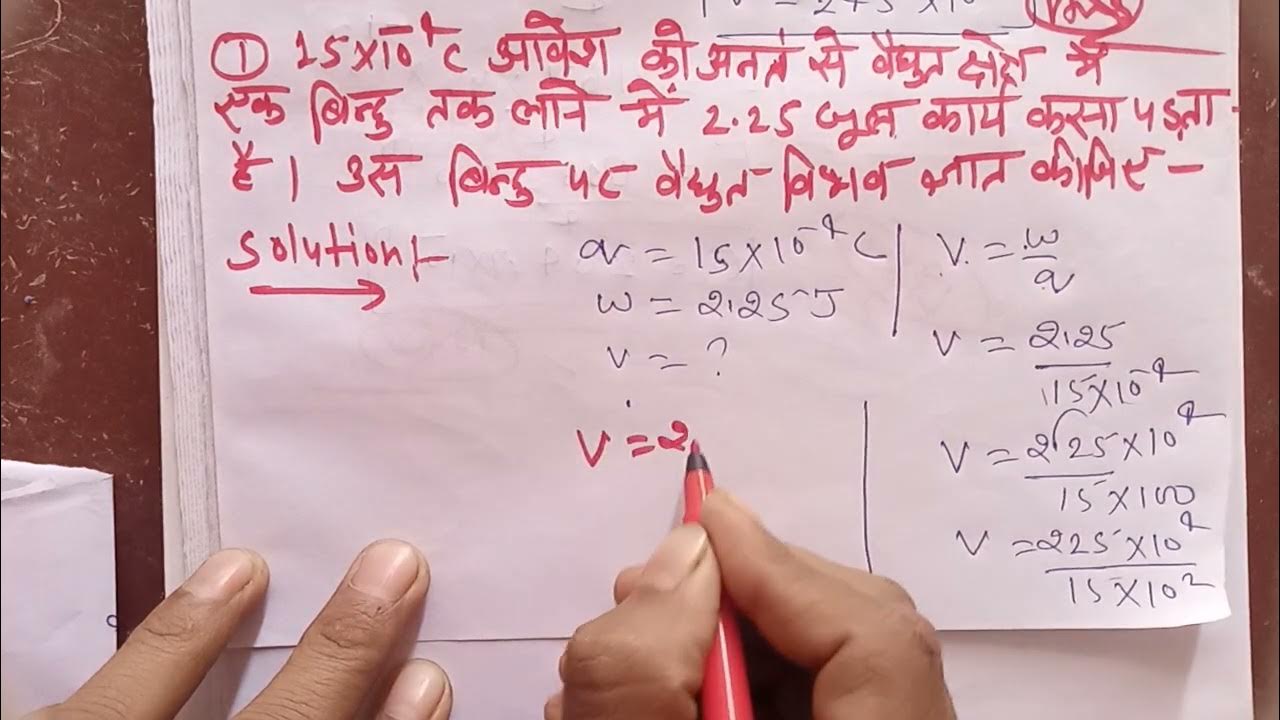 ① 15×10⁻⁹C आवेश को अनन्त से वैद्युत क्षेत्र में
एक बिन्दु तक लाने में 2.25 जूल कार्य करना पड़ता
है। उस बिन्दु पर वैद्युत विभव ज्ञात कीजिए –
Solution:-
q = 15×10⁻⁹C
W = 2.25 J
V = ?
V = 2.
V = W/q
V = 2.25 / 15×10⁻⁹
V = 225×10⁹ / 15×100
V = 225×10⁹ / 15×10²